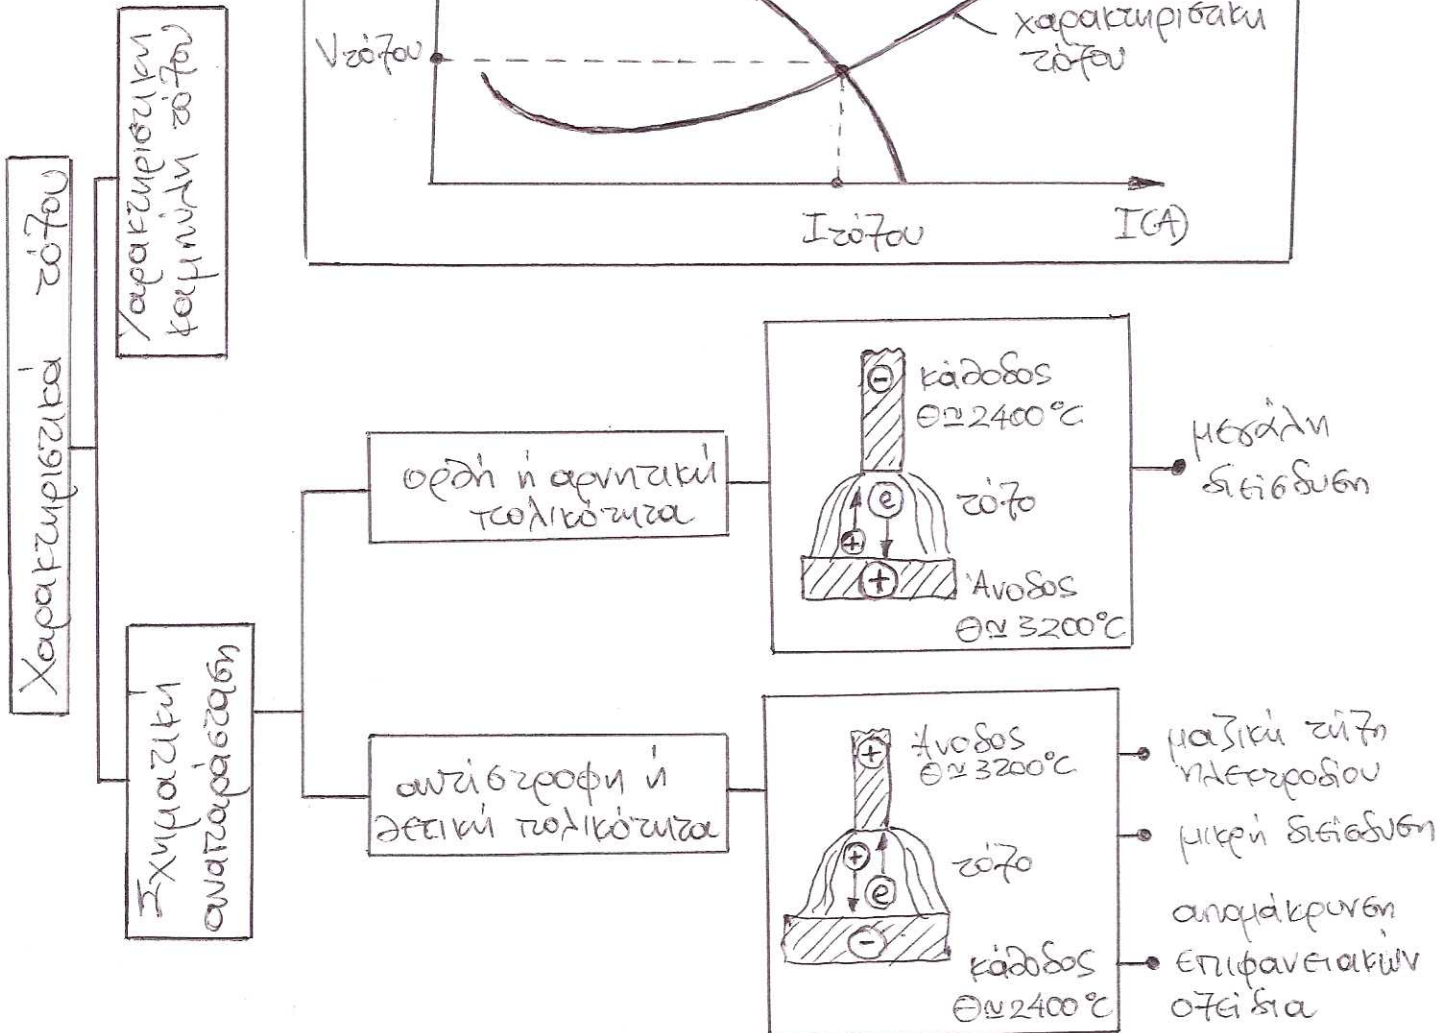 Χαρακτηριστικά τόξου
Χαρακτηριστική
καμπύλη τόξου
Vτόξου
χαρακτηριστική
τόξου
Ιτόξου
Ι(Α)
Σχηματική
αναπαράσταση
ορθή ή αρνητική
πολικότητα
-
κάθοδος
Θ≃2400°C
e
τόξο
+
+
Άνοδος
Θ≃3200°C
μεγάλη
διείσδυση
αντίστροφη ή
θετική πολικότητα
+
Άνοδος
Θ≃3200°C
+
τόξο
e
-
κάθοδος
Θ≃2400°C
μαζική τήξη
ηλεκτροδίου
μικρή διείσδυση
απομάκρυνση
επιφανειακών
οξείδια